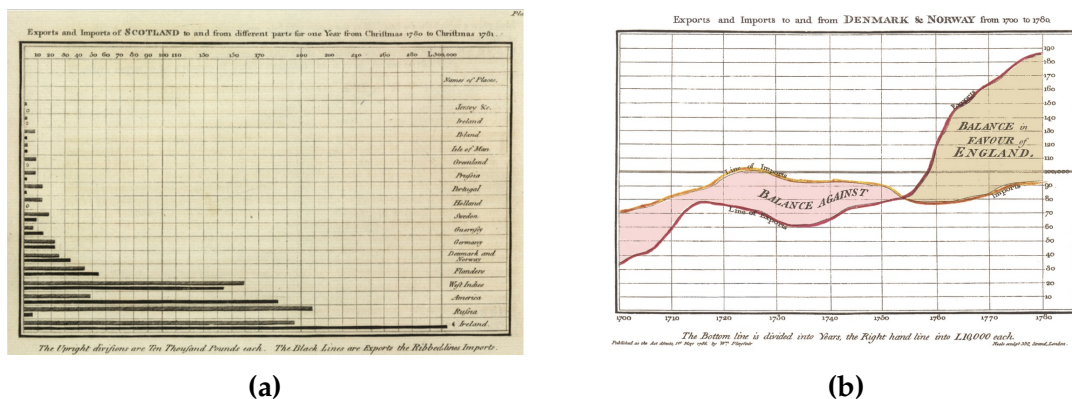 Exports and Imports of SCOTLAND to and from different parts for one Year from Christmas 1780 to Christmas 1781.
10 20 30 40 50 60 70 80 90 100 110 130 150 170 190 L300,000
Names of Places.
Jersey &c.
Ireland
Poland
Isle of Man
Greenland
Prussia
Portugal
Holland
Sweden
Guernsey
Germany
Denmark and
Norway
Flanders
West Indies
America
Russia
Ireland.
The Upright divisions are Ten Thousand Pounds each. The Black Lines are Exports the Ribbed lines Imports.
(a)
Exports and Imports to and from DENMARK & NORWAY from 1700 to 1780.
190
180
170
160
150
140
130
120
110
100,000
90
80
70
60
50
40
30
20
10
Exports
BALANCE in
FAVOUR of
ENGLAND.
Line of Imports
Imports
BALANCE AGAINST
Line of Exports
1700 1710 1720 1730 1740 1750 1760 1770 1780
The Bottom line is divided into Years, the Right hand line into L10,000 each.
Published as the Act directs, 1st May 1786. by Wm. Playfair
Neele sculpt 352, Strand, London.
(b)